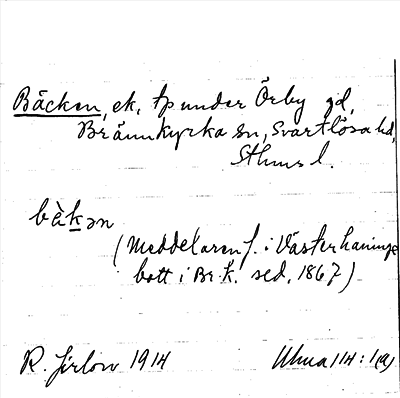 Bäcken, ek, tp under Örby gd,
Brännkyrka sn, Svartlösa hd,
Sthms l.
bàkən
(Meddelaren f. i Västerhaninge
bott i Br.k. sed. 1867)
R. Jirlow 1914
114:1(a)